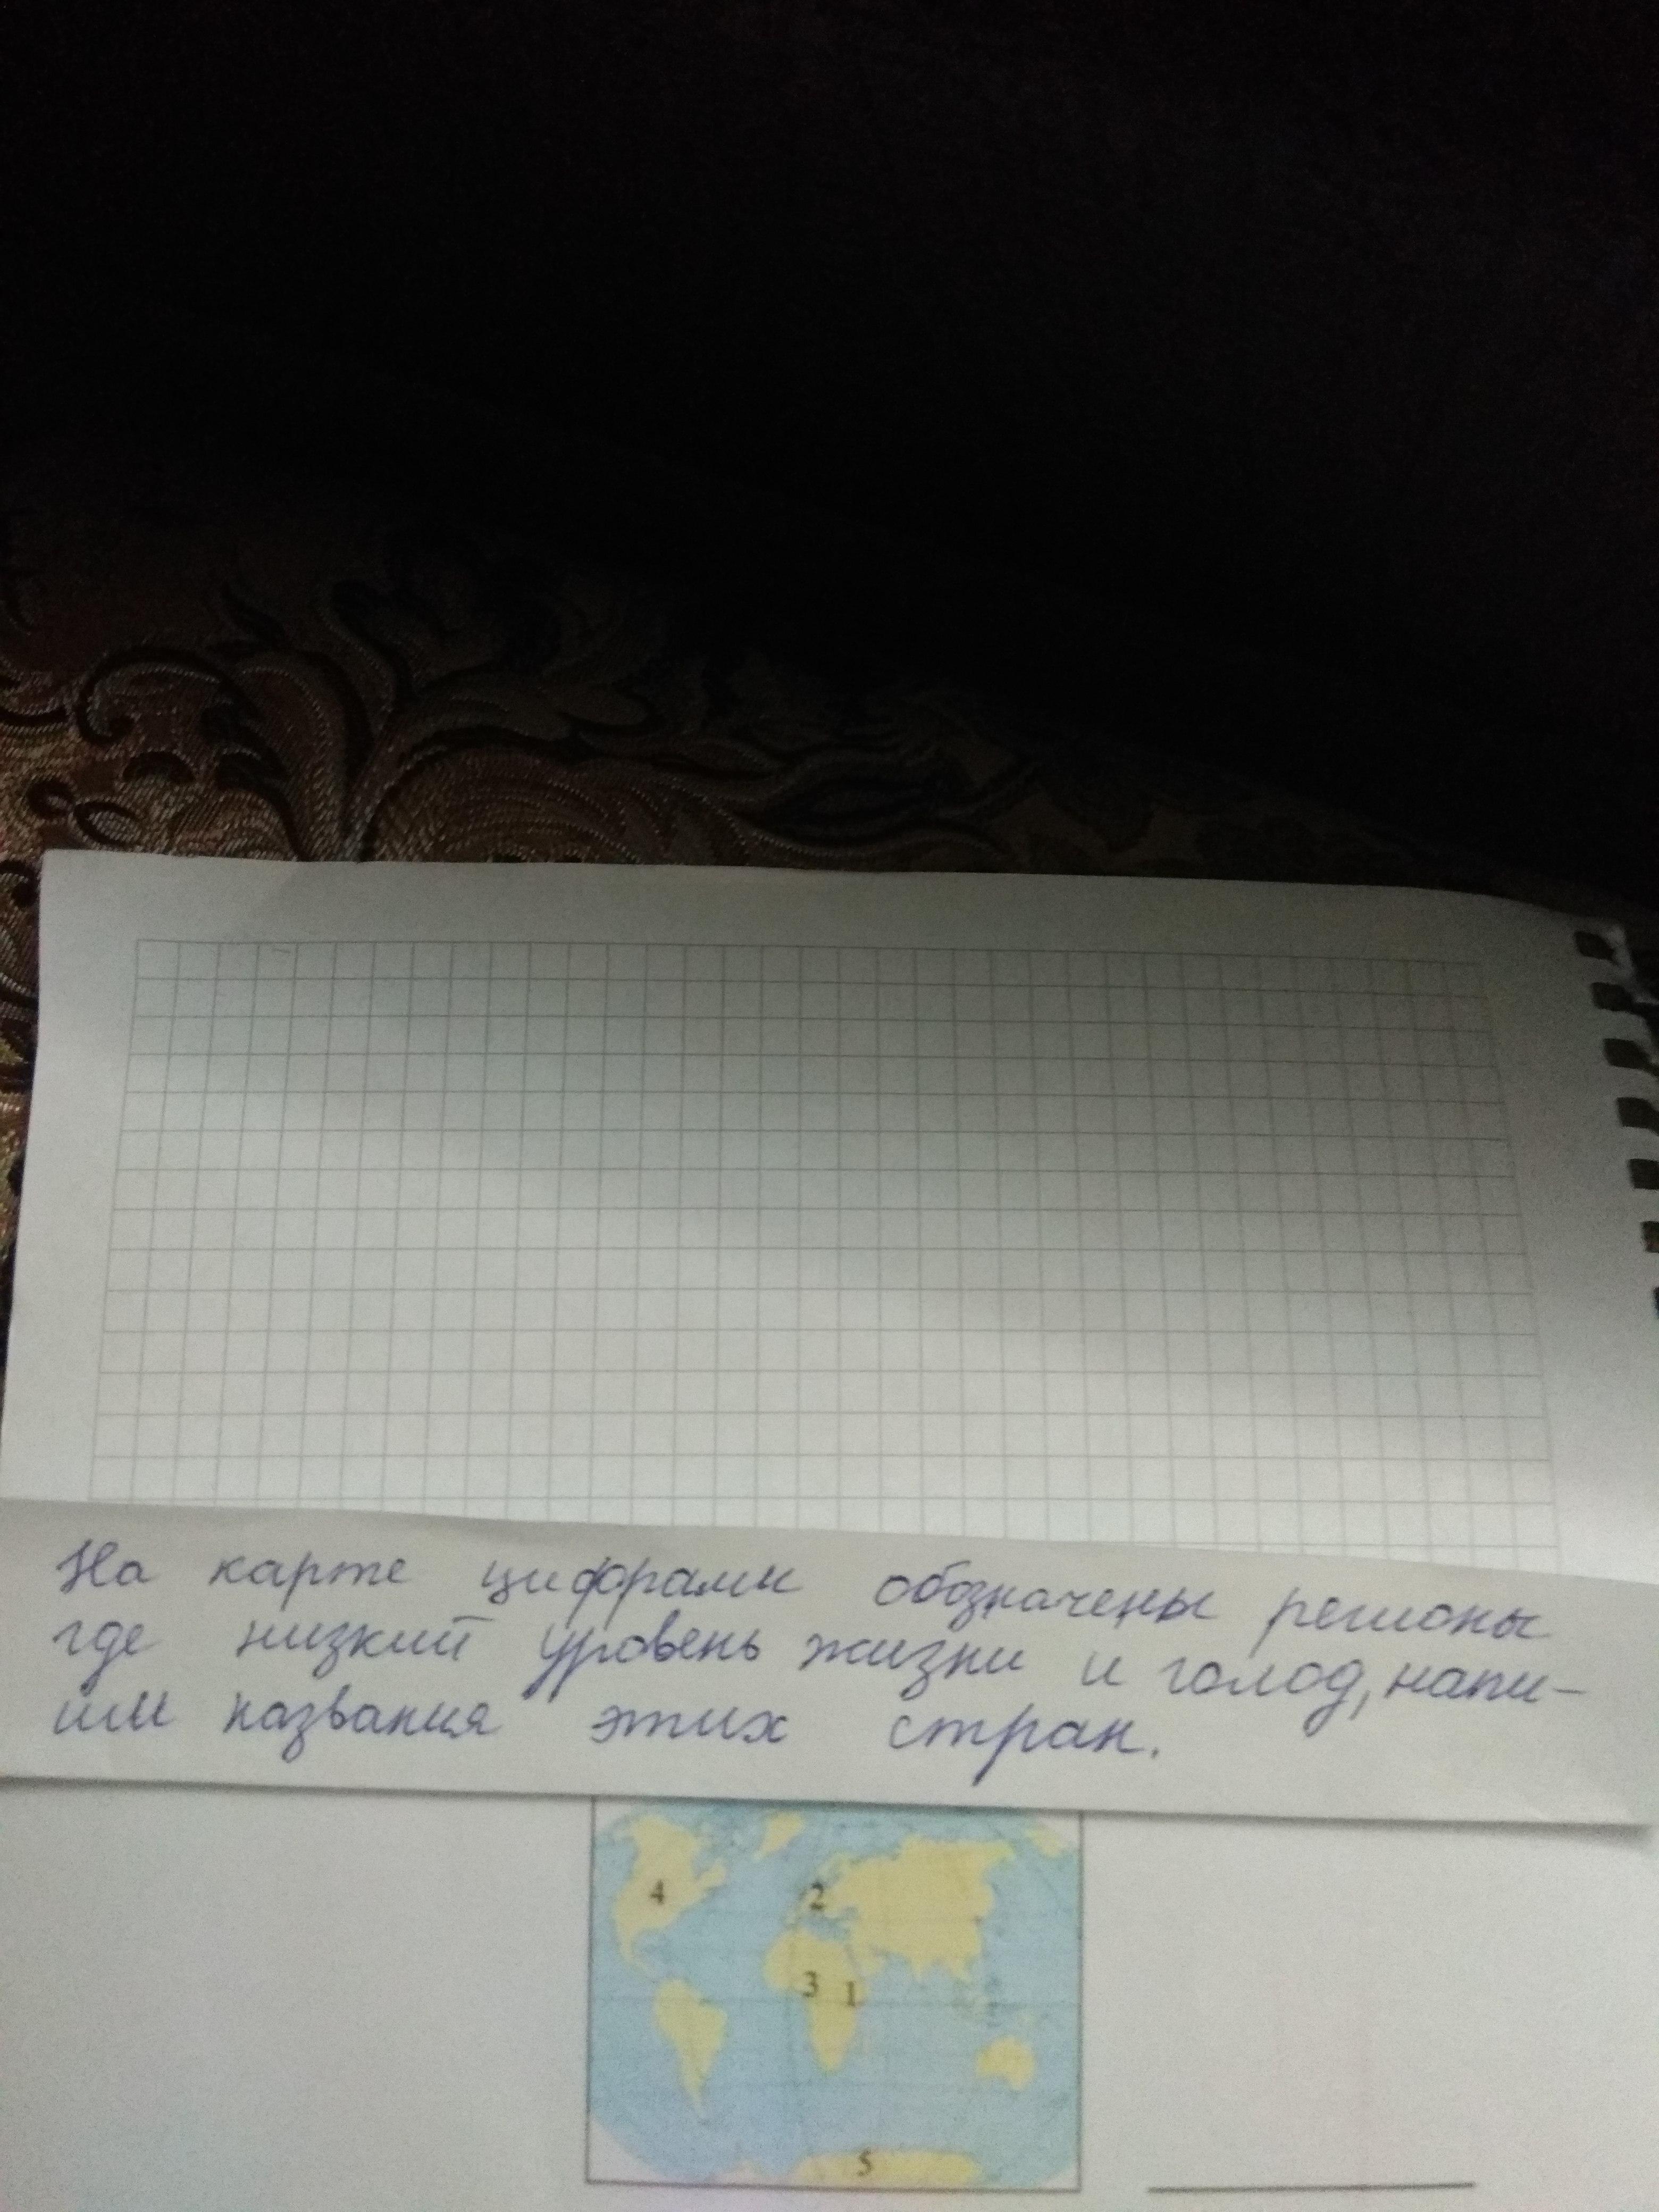 На карте цифрами обозначены регионы
где низкий уровень жизни и голод, напи-
ши названия этих стран.
4
2
3 1
5